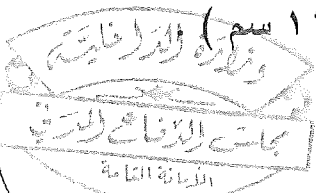 ١ سم ) .
وزارة الداخلية
مجلس الدفاع المدني
الأمانة العامة